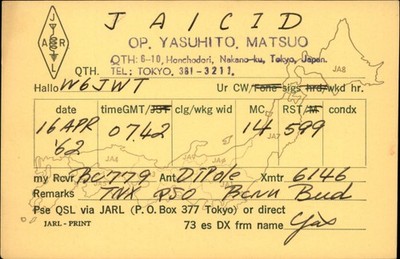 JA1CID
JARL
OP. YASUHITO, MATSUO
QTH: 6-10, Honchodori, Nakano-ku, Tokyo, Japan.
QTH. TEL: TOKYO. 381-3211.
JA8
Hallo W6JWT Ur CW/Fone sigs hrd/wkd hr.
date timeGMT/JST clg/wkg wid MC RST/M condx
16 APR 0742 14 599
'62
my Rcvr BC779 Ant DiPole Xmtr 6146
Remarks TNX QSO Bcnu Bud
Pse QSL via JARL (P.O. Box 377 Tokyo) or direct
JARL-PRINT 73 es DX frm name Yas